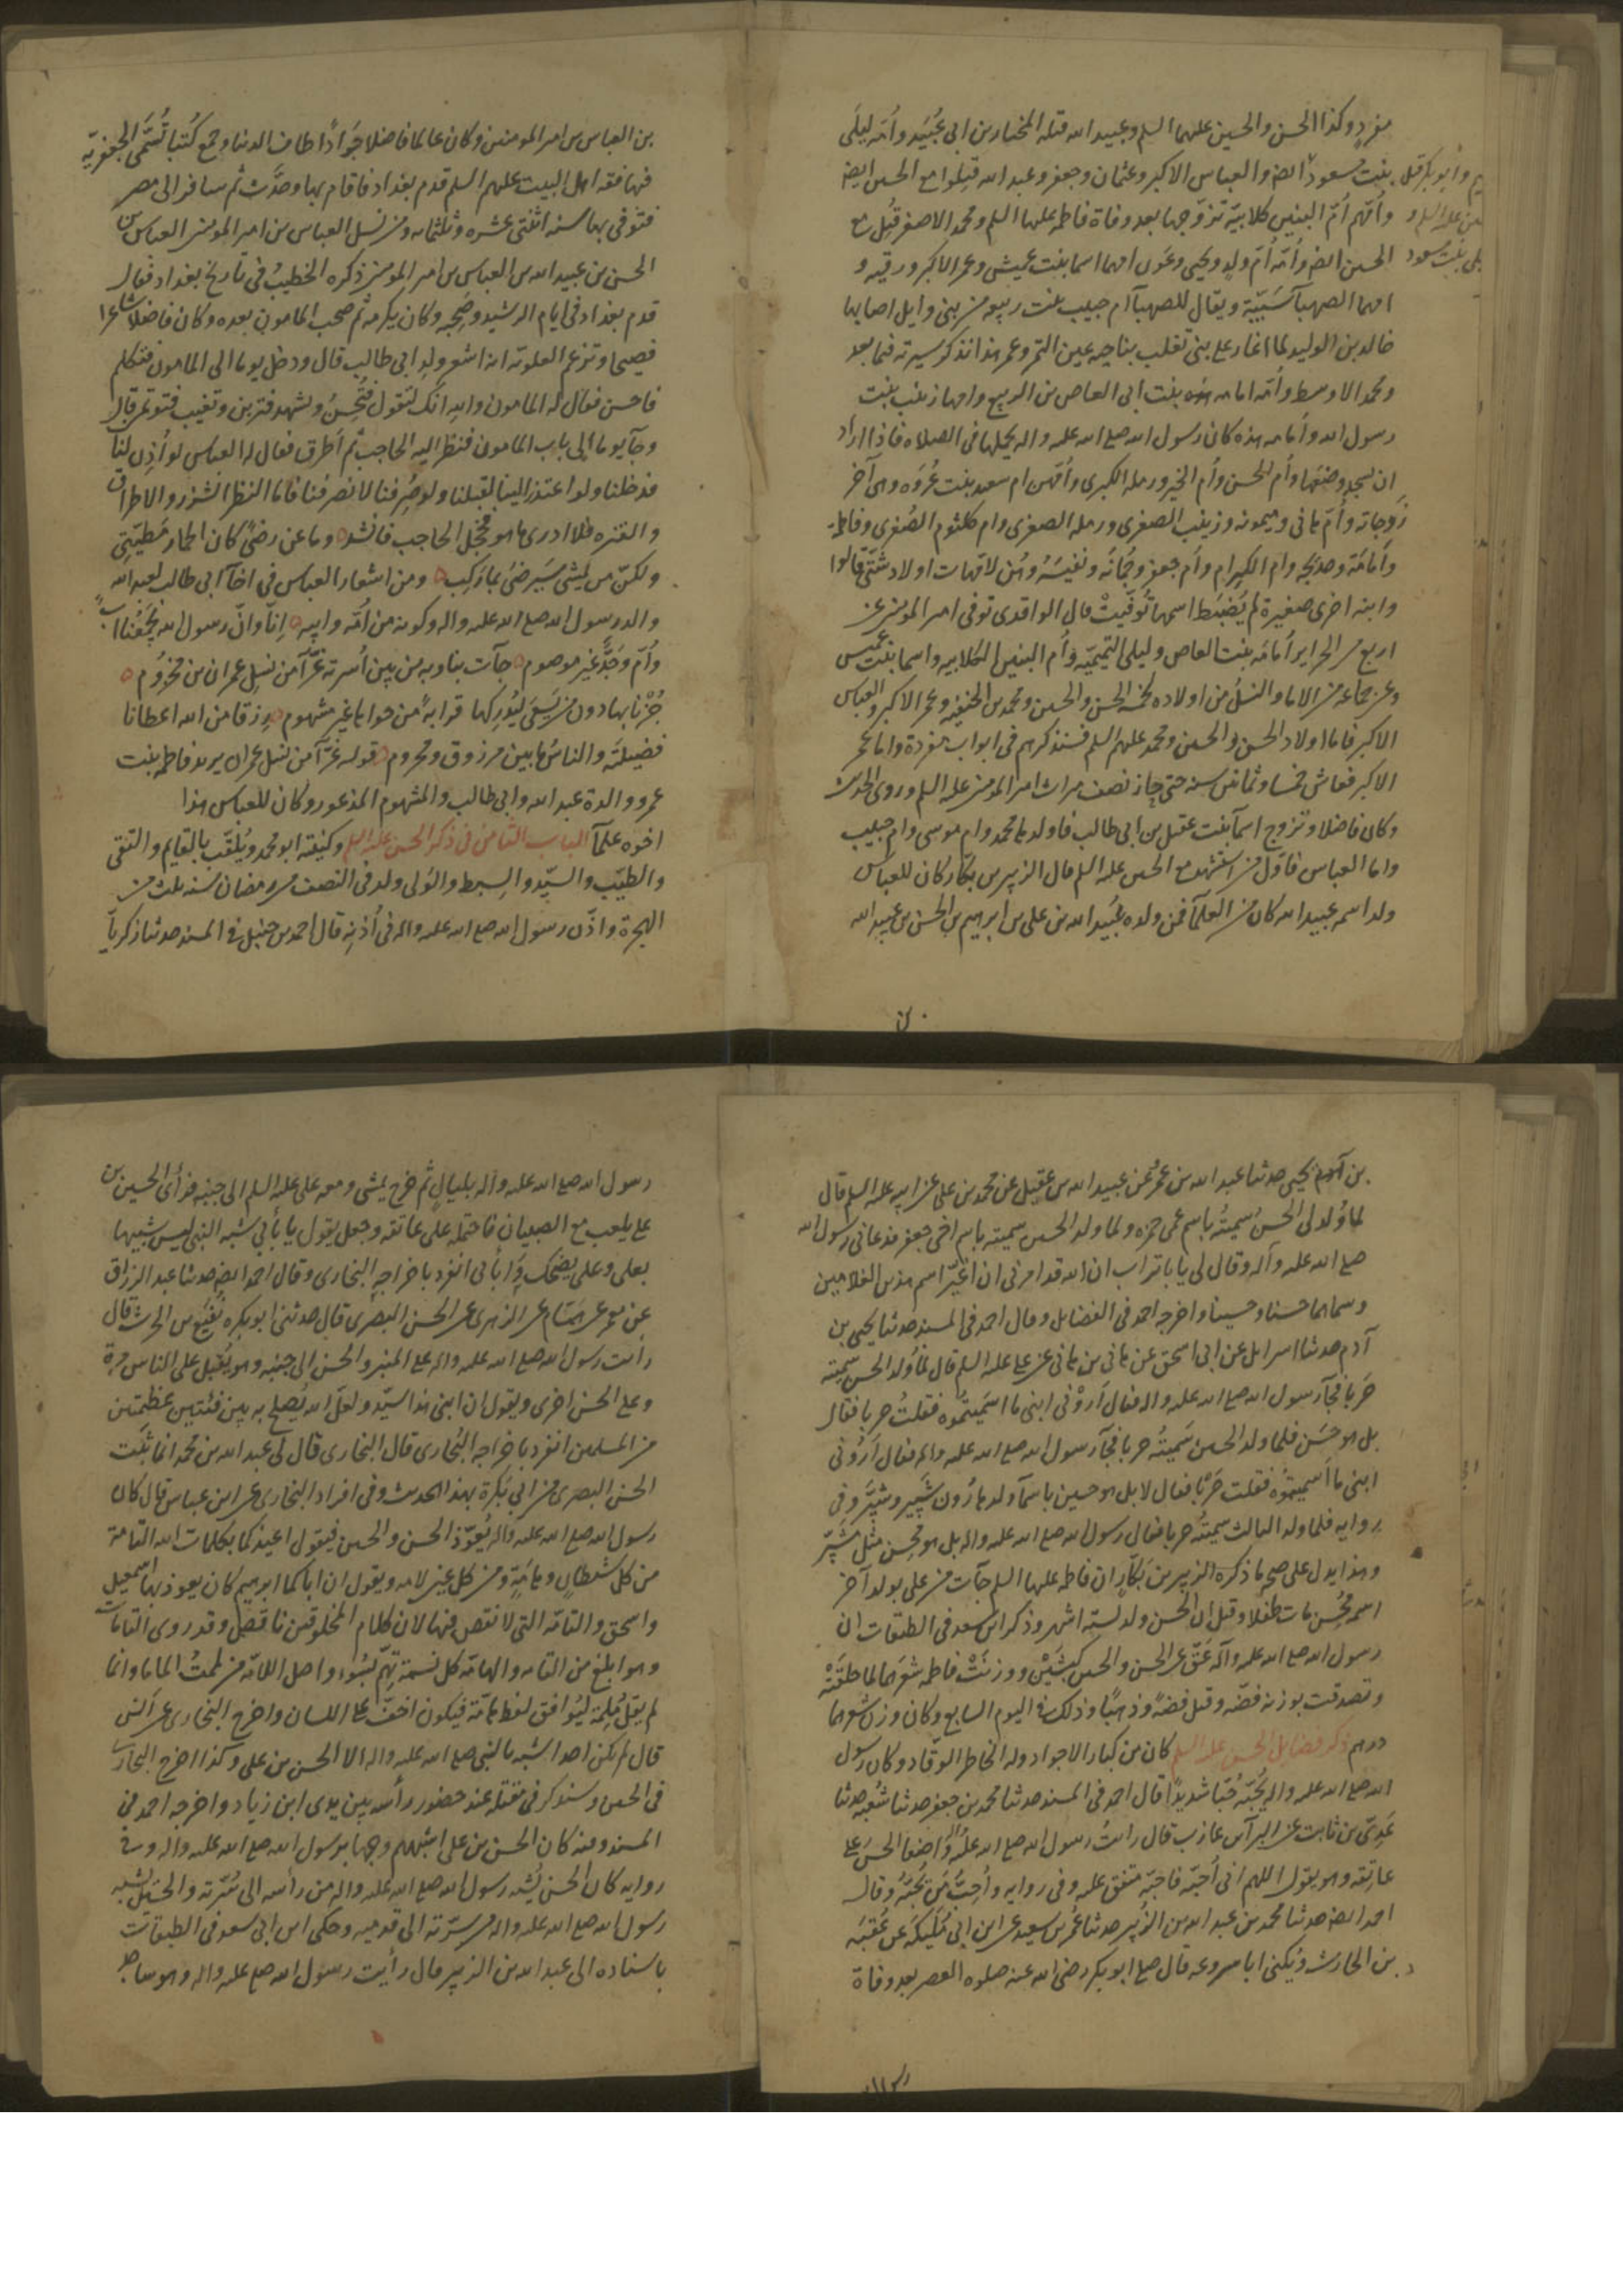 مفردٍ وكذا الحسن والحسين عليهما السلم وعبيد الله قتله المختار بن ابى عُبَيد وأمّه ليلَى
بنت مسعود ايضا والعباس الاكبر وعثمان وجعفر وعبد الله قتلوا مع الحسين ايضا
وأمّهم أمّ البنين كلابيّة تزوّجها بعد وفاة فاطمه عليها السلم ومحمد الاصغر قُتِل مع
الحسين ايضا وأمّه أمّ ولدٍ ويحيى وعَون امهما اسما بنت عميس وعمر الاكبر ورقيه و
امهما الصهبآ سَبِيّة ويقال للصهبآ ام حبيب بنت ربيعه من بنى وايل اصابها
خالد بن الوليد لما اغار على بنى تغلب بناحيه عين التمر وعمر هذا نذكر سيرته فيما بعد
ومحمد الاوسط وأمّه امامه بنت ابى العاص بن الربيع وامها زينب بنت
رسول الله وأمامه هذه كان رسول الله صلى الله عليه واله يحملها فى الصلاه فاذا اراد
ان يسجد وضعَها وأم الحسن وأم الخير ورملة الكبرى وأمّهن ام سعيد بنت عُروَه وهى آخر
زوجاته وأمّ هانى وميمونه وزينب الصغرى ورمله الصغرى وام كلثوم الصُغرى وفاطمة
وأمامَة وخديجه وام الكِرام وأم جعفر وجُمانَه ونفيسَة وهُن لامّهات اولاد شتّى قالوا
وابنه اخرى صغيرة لم يُضبَط اسمها تُوفّيتْ قال الواقدى توفى امير المومنين عن
اربع من الحراير أمامَه بنت العاص وليلى التميميّه وأم البنين الكلابيه واسما بنت عميس
وعن جماعه من الاما والنسلُ من اولاده لخمسة الحسن والحسين ومحمد بن الحنفيه وعمر الاكبر والعباس
الاكبر فاما اولاد الحسن والحسين ومحمد عليهم السلم فسنذكرهم فى ابواب مفردة واما عمر
الاكبر فعاش خمسا وثمانين سنه حتى حاز نصف ميراث امير المومنين عليه السلم وروى الحديث
وكان فاضلا وتزوج اسمآ بنت عقيل بن ابى طالب فاولدها محمد وام موسى وام حبيب
واما العباس فاوّل من استشهد مع الحسين عليه السلم قال الزبير بن بكّار كان للعباس
ولد اسمه عبيد الله كان من العلمآ فمن ولده عُبَيد الله بن على بن ابرهيم بن الحسن بن عبيد الله
وأبو بكر قتل
ليلى بنت مسعود
بن العباس بن امير المومنين وكان عالما فاضلا جَوَادًا طاف الدنيا وجمع كُتبا تُسَمَّى الجعفريّه
فيها فقه اهل البيت عليهم السلم قدم بغداد فاقام بها وحدَّث ثم سافر الى مصر
فتوفى بها سنه اثنتى عشره وثلثمايه ومن نسل العباس بن امير المومنين العباس بن
الحسن بن عبيد الله بن العباس بن امير المومنين ذكره الخطيبُ فى تاريخ بغداد فقال
قدم بغداد فى ايام الرشيد وصَحِبه وكان يكرمه ثم صحب المامون بعده وكان فاضلا شاعرا
فصيحا وتزعم العلويّه انه اشعر ولدِ ابى طالب قال ودخل يوما الى المامون فتكلم
فاحسن فقال له المامون والله انّك لتقول فتُحسِنُ وتشهد فتزين وتغيب فتؤتمن قال
وجآ يوما الى باب المامون فنظر اليه الحاجب ثم أطرق فقال له العباس لو أُذِن لنا
فدخلنا ولو اعتذر الينا لقبلنا ولو صُرِفنا لانصرفنا فاما النظر الشزر والاطراق
والفتره فلا ادرى ما هو فخجل الحاجب فانشد وما عن رضىً كان الحمار مَطيّتِى
ولكنّ من يمشى سَيَرضَى بما ركِب ومن اشعار العباس فى اخآ ابى طالب لعبد الله
والد رسول الله صلى الله عليه واله وكونه من أمّه وابيه إنّا وانّ رسول الله يَجمَعُنا ابٌ
وأُمّ وَجَدٌّ غير موصوم جآت بنا وبه من بين أُسرتِه غرّآ من نسلِ عمران بن مخزُوم
حُزْنا بها دون من يَسعَى ليُدرِكها قرابةً من حواها غير مشهوم رزقًا من الله اعطانا
فضيلته والناسُ ما بين مرزوق ومحروم قوله غرّآ من نسل عمران يريد فاطمه بنت
عمرو والدة عبد الله وابى طالب والمشهوم المذعور وكان للعباس هذا
اخوه علمآ الباب الثامن فى ذكر الحسن عليه السلم وكنيته ابو محمد ويُلقّب بالقايم والتقى
والطيّب والسيّد والسِبط والوَلى ولد فى النصف من رمضان سنه ثلث من
الهجرة واذّن رسول الله صلى الله عليه واله فى أُذنِه قال احمد بن حنبل فى المسند حدثنا زكريآ
بن يحيى حدثنا عبد الله بن عمر عن عبيد الله بن عقيل عن محمد بن على عن ابيه عليه السلم قال
لما وُلد لى الحسنُ سميتُه باسم عمى حمزه ولما ولد الحسين سميته باسم اخى جعفر فدعانى رسول الله
صلى الله عليه وآله وقال لى يا با تراب ان الله قد امرنى ان اغيّر اسم هذين الغلامين
وسماهما حسنا وحسينا واخرجه احمد فى الفضايل وقال احمد فى المسند حدثنا يحيى بن
آدم حدثنا اسرايل عن ابى اسحق عن هانى بن هانى عن على عليه السلم قال لما وُلد الحسن سميته
حَربا فجآ رسول الله صلى الله عليه واله فقال أرُوْنى ابنى ما اسَميتمُوه فقلتُ حربا فقال
بل هو حسَن فلما ولد الحسين سَميتُه حربا فجآ رسول الله صلى الله عليه واله فقال أرُونى
ابنى ما أَسميتمُوه فقلت حَرْبًا فقال لا بل هو حسين باسمآ ولد هارُون شَبِير وشبّر وفى
روايه فلما ولد الثالث سميتُه حربا فقال رسول الله صلى الله عليه واله بل هو مُحسِن مثل مُشَبّر
وهذا يدل على صحه ما ذكره الزبير بن بَكّارٍ ان فاطمه عليها السلم جآت من على بولد آخر
اسمه مُحْسِن مات طفلا وقيل ان الحسن ولد لستة اشهر وذكر ابن سعد فى الطبقات ان
رسول الله صلى الله عليه وآله عَقّ عن الحسن والحسين كبشَيْن ووزنَتْ فاطمه شعرَهما لما حلقَتْه
وتصدقت بوزنه فضّه وقيل فضةً وذهبًا وذلك فى اليوم السابع وكان وزن شعرهما
درهم ذكر فضايل الحسن عليه السلم كان من كبار الاجواد وله الخاطر الوقّاد وكان رسول
الله صلى الله عليه واله يُحبّه حُبّا شديدًا قال احمد فى المسند حدثنا محمد بن جعفر حدثنا شُعبه حدثنا
عَدِىّ بن ثابت عن البرآ بن عازب قال رايتُ رسول الله صلى الله عليه واله وَاضعا الحسن على
عاتِقه وهو يقول اللهم انى أُحبّه فاحبّه متفق عليه وفى روايه وأُحِبُّ مَن يُحبّهُ وقال
احمد ايضا حدثنا محمد بن عبد الله بن الزُبير حدثنا عُمر بن سعيد عن ابن ابى مُلَيكَة عن عُقبَه
بن الحارث ويُكنى ابا سروعه قال صلى ابو بكر رضى الله عنه صلوه العصر بعد وفاة
رسول الله صلى الله عليه واله بليالٍ ثم خرج يمشى ومعه على عليه السلم الى جنبِه فرأى الحسن بن
على يلعب مع الصبيان فاحتمله على عاتقه وجعل يقول يا بأبى شبه النبى ليس شبيها
بعلى وعلى يضحك انفرد باخراجِه البخارى وقال احمد ايضا حدثنا عبد الرزاق
عن معمر عن هشام عن الزهرى عن الحسن البصرى قال حدثنى ابو بكره نُفَيع بن الحرث قال
رايت رسول الله صلى الله عليه واله على المنبر والحسن الى جنبِه وهو يُقبل على الناس مرة
وعلى الحسن اخرى ويقول ان ابنى هذا سيّد ولعَلّ الله يُصلح به بين فئتين عظيمتين
من المسلمين انفرد باخراجه البُخارى قال البخارى قال لى عبد الله بن محمد انما ثبَت
الحسن البصرى من ابى بَكرة بهذا الحديث وفى افراد البخارى عن ابن عباس قال كان
رسول الله صلى الله عليه واله يُعوّذ الحسن والحسين فيقول اعيذكما بكلمات الله التامة
من كل شيطانٍ وهامّةٍ ومن كل عينٍ لامه ويقول ان اباكما ابرهيم كان يعوذ بها اسمعيل
واسحق والتامّه التى لا نقص فيها لان كلام المخلوقين ناقص وقد روى التامات
وهو ابلغ من التامه والهامّه كل نسمة تهِمّ بسُوء واصل اللامّه من الممتُ الماما وانما
لم يقل مُلِمّة ليُوافق لفظ هامّة فيكون اخفّ على اللسان واخرج البخارى عن انس
قال لم يكن احد اشبه بالنبى صلى الله عليه واله الا الحسن بن على وكذا اخرج البخارى
فى الحسين وسنذكر فى مقتله عند حضور رأسه بين يدى ابن زياد واخرجه احمد فى
المسند وعنه كان الحسن بن على اشبههم وجها برسول الله صلى الله عليه واله وفى
روايه كان الحسن يُشبه رسول الله صلى الله عليه واله من رأسه الى سُرّته والحسين يشبه
رسول الله صلى الله عليه واله من سرّته الى قدميه وحكى ابن ابى سعد فى الطبقات
باسناده الى عبد الله بن الزبير قال رأيت رسول الله صلى عليه واله وهو ساجد